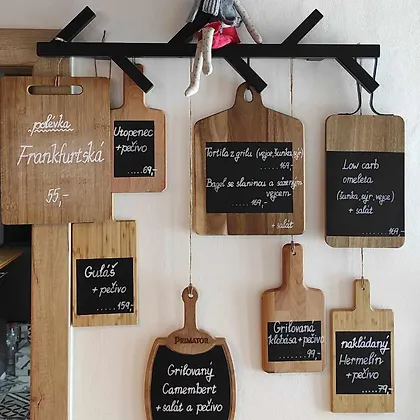 polévka
Frankfurtská
55,-
Utopenec
+pečivo
.....69,-
Tortila z grilu (vejce,šunka,sýr)
169,-
Bagel se slaninou a sázeným
vejcem
169,-
+ salát
Low carb
omeleta
(šunka,sýr,vejce)
+ salát
.....169,-
Guláš
+ pečivo
.....159,-
PRIMATOR
Grilovaný
Camembert
+salát a pečivo
Grilovaná
klobása+pečivo
........99,-
nakládaný
Hermelín
+pečivo
.....79,-